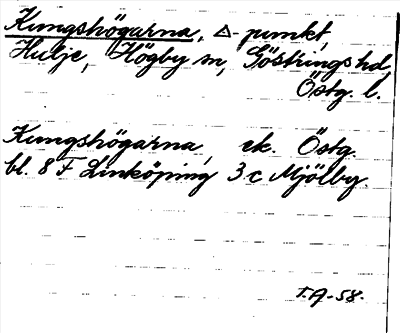 Kungshögarna, △-punkt,
Hulje, Högby sn, Göstrings hd
Östg. l.
Kungshögarna, ek. Östg.
bl. 8 F Linköping 3 c Mjölby.
T.A-58.